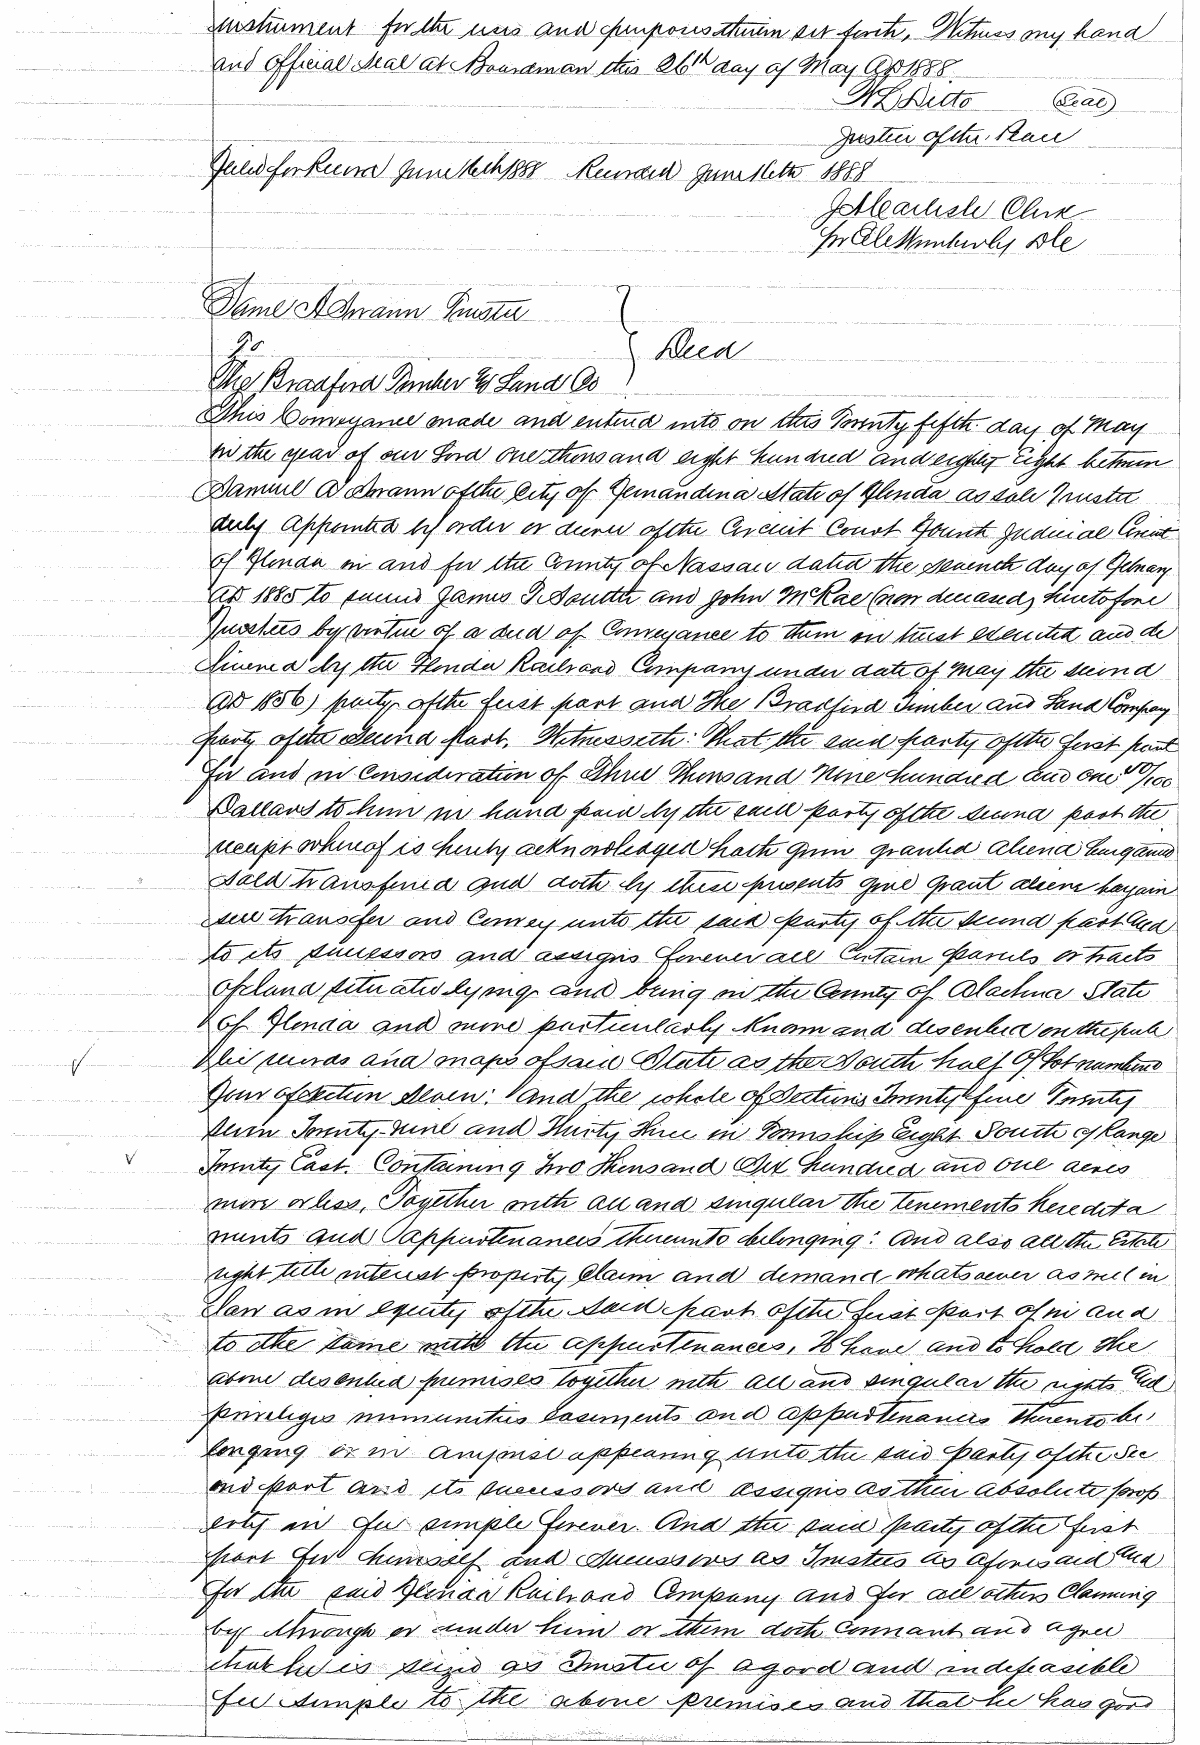 instrument for the uses and purposes therein set forth. Witness my hand
and official Seal at Boardman this 26th day of May AD 1888.
Ditto (Seal)
Justice of the Peace
Filed for Record June 16th 1888 Recorded June 16th 1888
Clerk
DC
Saml A Swann Trustee
To } Deed
The Bradford Timber & Land Co
This Conveyance made and entered into on this Twenty fifth day of May
in the year of our Lord one thousand eight hundred and eighty Eight between
Samuel A Swann of the City of Fernandina State of Florida as sole Trustee
duly appointed by order or decree of the Circuit Court Fourth Judicial Circuit
of Florida in and for the County of Nassau dated the seventh day of February
AD 1885 to succeed James T. Soutter and John McRae (now deceased, heretofore
Trustees by virtue of a deed of Conveyance to them in trust executed and de
livered by the Florida Railroad Company under date of May the second
AD 1856) party of the first part and The Bradford Timber and Land Company
party of the Second part. Witnesseth: That the said party of the first part
for and in consideration of Three Thousand Nine hundred and one 50/100
Dollars to him in hand paid by the said party of the second part the
receipt whereof is hereby acknowledged hath given granted aliened bargained
sold transferred and doth by these presents give grant aliene bargain
sell transfer and Convey unto the said party of the second part and
to its successors and assigns forever all Certain parcels or tracts
of land situated lying and being in the County of Alachua State
of Florida and more particularly known and described on the pub
lic records and maps of said State as the South half of Lot numbered
Four of Section Seven: and the whole of Sections Twenty five Twenty
seven Twenty-nine and Thirty Three in Township Eight South of Range
Twenty East. Containing Two Thousand Six hundred and one acres
more or less, Together with all and singular the tenements heredita
ments and appurtenances thereunto belonging: And also all the Estate
right title interest property Claim and demand whatsoever as well in
Law as in equity of the said part of the first part of in and
to the same with the appurtenances, To have and to hold the
above described premises together with all and singular the rights and
privileges immunities easements and appurtenances thereunto be
longing or in anywise appearing unto the said party of the Sec
ond part and its successors and assigns as their absolute prop
erty in fee simple forever. And the said party of the first
part for himself and Successors as Trustees as aforesaid and
for the said Florida Railroad Company and for all others Claiming
by through or under him or them doth Covenant and agree
that he is seized as Trustee of a good and indefeasible
fee simple to the above premises and that he has good